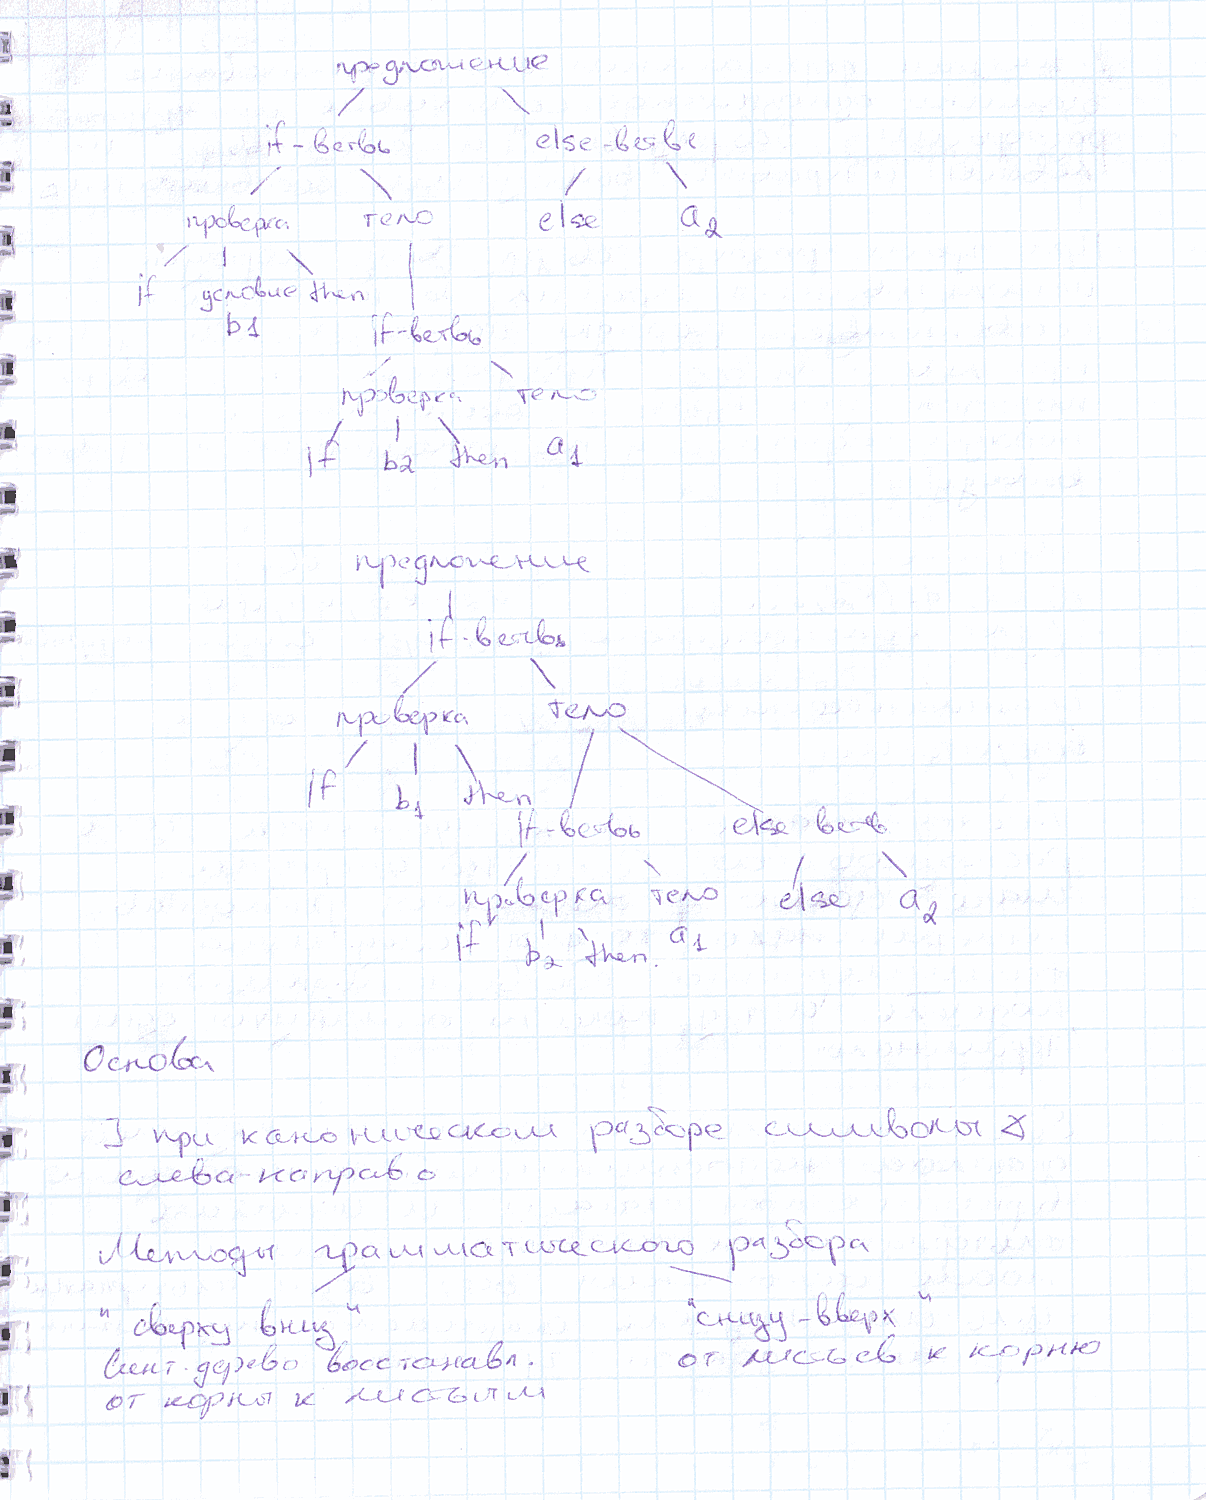 предложение
if-ветвь else-ветвь
проверка тело else a2
if условие then
b1 if-ветвь
проверка тело
if b2 then a1
предложение
if-ветвь
проверка тело
if b1 then
if-ветвь else ветв
проверка тело else a2
if b2 then. a1
Основа
при каноническом разборе символы
слева-направо
Методы грамматического разбора
"сверху вниз" "снизу-вверх"
Синт. дерево восстанавл. от листьев к корню
от корня к листьям